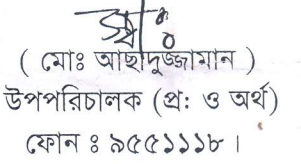 ( মোঃ আছাদুজ্জামান )
উপপরিচালক (প্র: ও অর্থ)
ফোন ঃ ৯৫৫১১১৮ ।